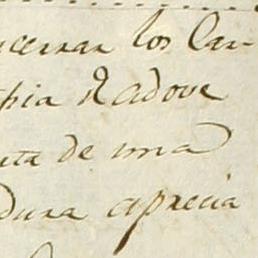 ncerrar los Can-
pia d Adove
uta de una
dura aprecia